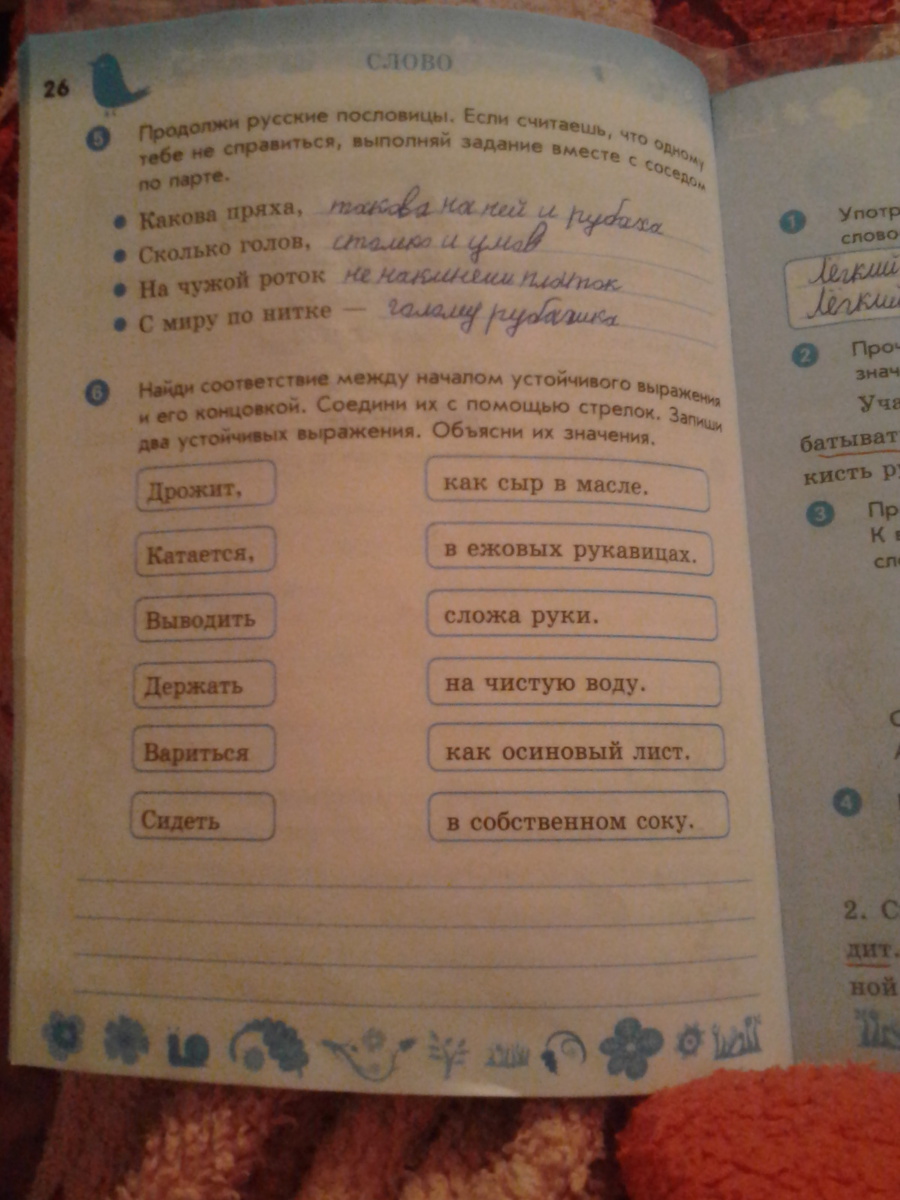 СЛОВО
26
5 Продолжи русские пословицы. Если считаешь, что одному
тебе не справиться, выполняй задание вместе с соседом
по парте.
• Какова пряха, такова на ней и рубаха
• Сколько голов, столько и умов
• На чужой роток не накинеш платок
• С миру по нитке — голому рубашка
6 Найди соответствие между началом устойчивого выражения
и его концовкой. Соедини их с помощью стрелок. Запиши
два устойчивых выражения. Объясни их значения.
Дрожит, как сыр в масле.
Катается, в ежовых рукавицах.
Выводить сложа руки.
Держать на чистую воду.
Вариться как осиновый лист.
Сидеть в собственном соку.
1 Употр
слово
Лёгкий
Лёгкий
2 Проч
знач
Уча
батыват
кисть р
3 Пр
К
сл
4
2. С
дит.
ной